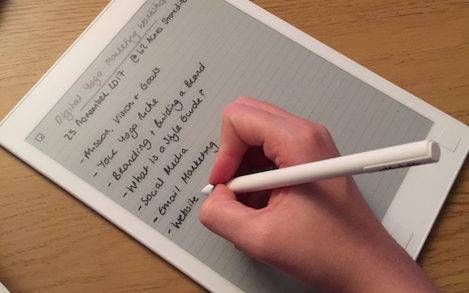 Digital Yoga Marketing Workshop
25 November 2017 @ 42 Acres Shoreditch
- Mission, Vision + Goals
- Your Yoga Niche
- Branding + Building a Brand
- What is a Style Guide?
- Social Media
- Email Marketing
- Website